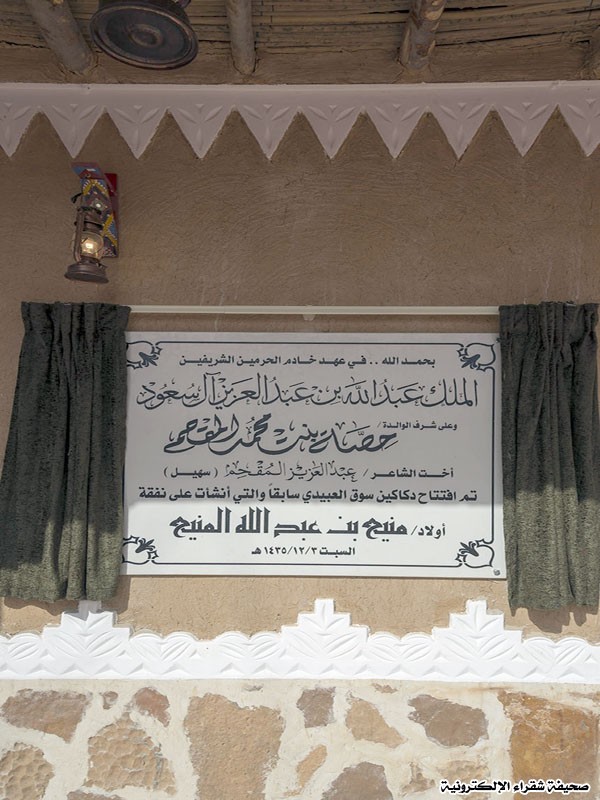 بحمد الله .. في عهد خادم الحرمين الشريفين
الملك عبدالله بن عبدالعزيز آل سعود
وعلى شرف الوالدة / حصة بنت محمد المقحم
أخت الشاعر / عبدالعزيز المقحم ( سهيل )
تم افتتاح دكاكين سوق العبيدي سابقاً والتي أنشأت على نفقة
أولاد/ منيع بن عبد الله المنيع
السبت ١٤٣٥/١٢/٣ هـ
صحيفة شقراء الإلكترونية